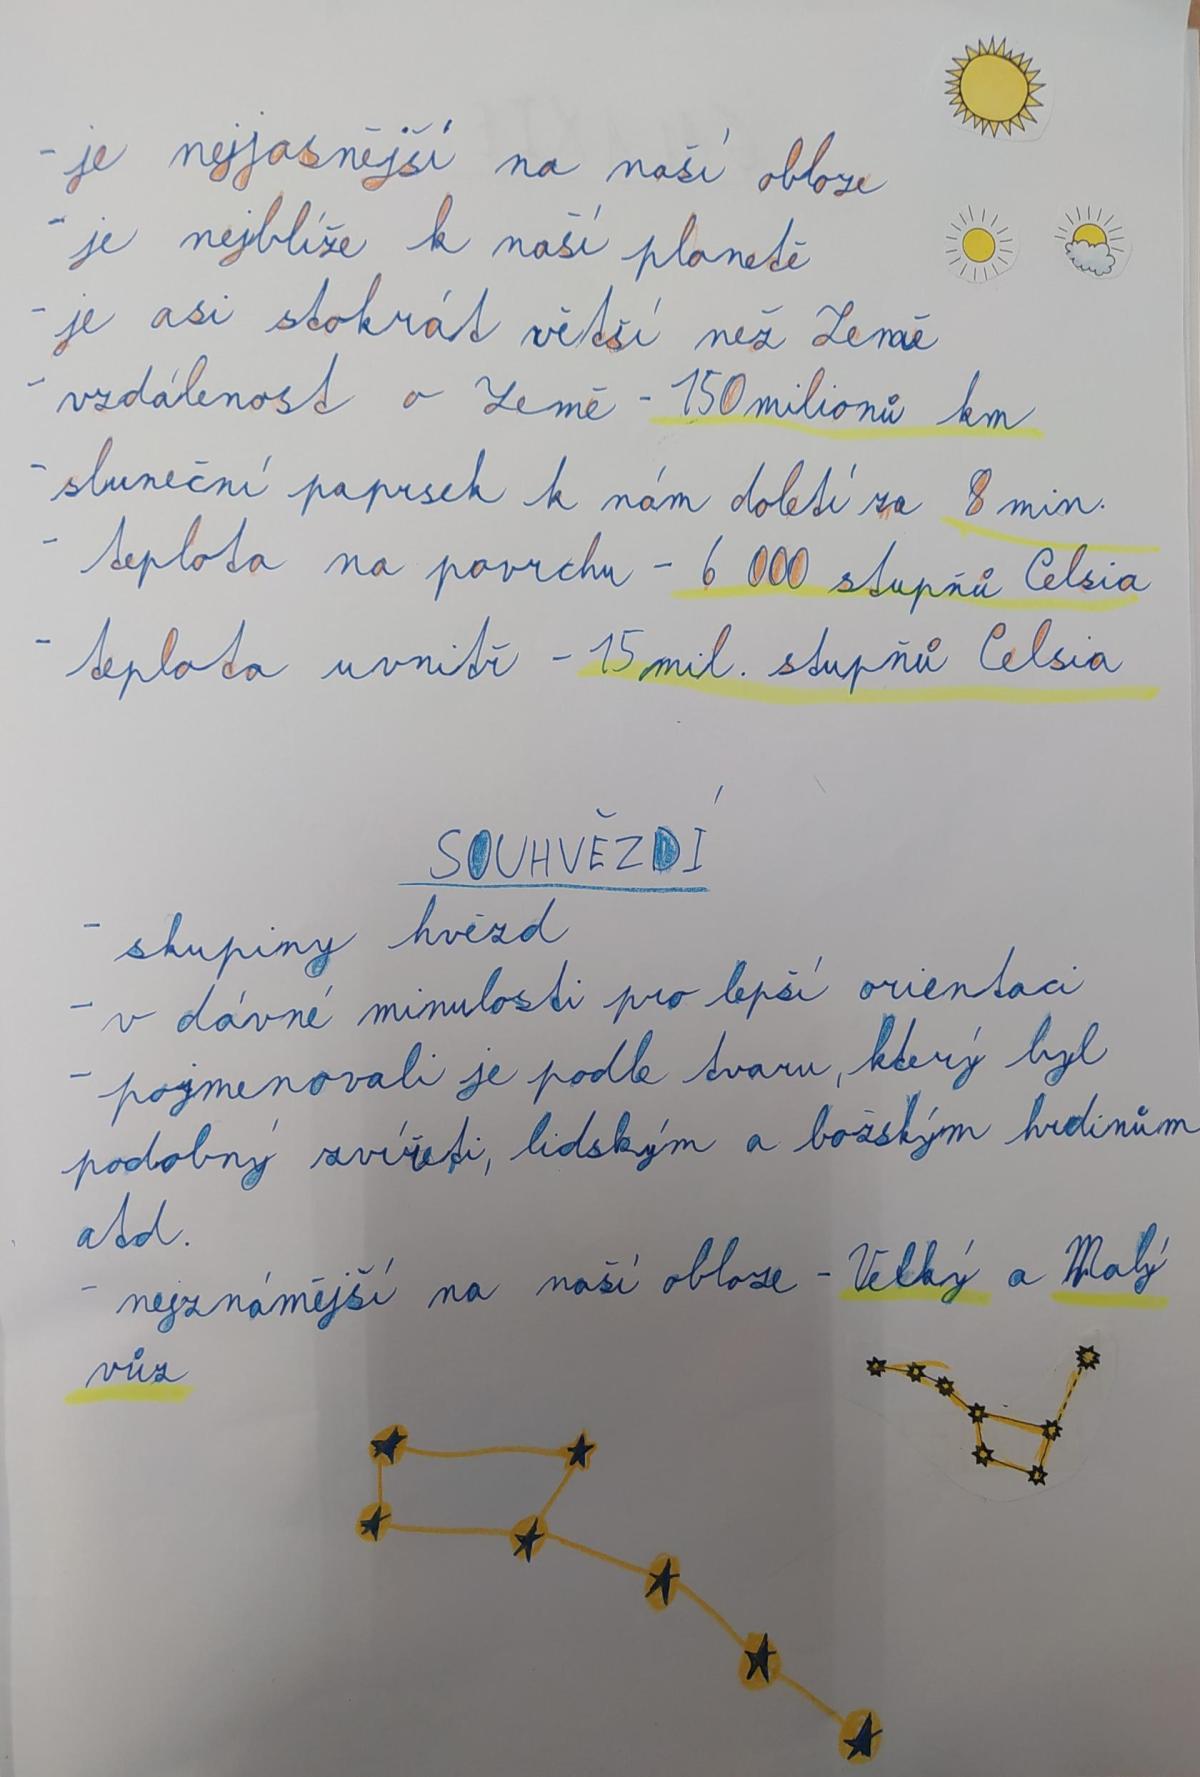 - je nejjasnější na naší obloze
- je nejblíže k naší planetě
- je asi stokrát větší než Země
- vzdálenost o Země - 150 milionů km
- sluneční paprsek k nám doletí za 8 min.
- teplota na povrchu - 6 000 stupňů Celsia
- teplota uvnitř - 15 mil. stupňů Celsia
SOUHVĚZDÍ
- skupiny hvězd
- v dávné minulosti pro lepší orientaci
- pojmenovali je podle tvaru, který byl
podobný zvířeti, lidským a božským hrdinům
atd.
- nejznámější na naší obloze - Velký a Malý
vůz